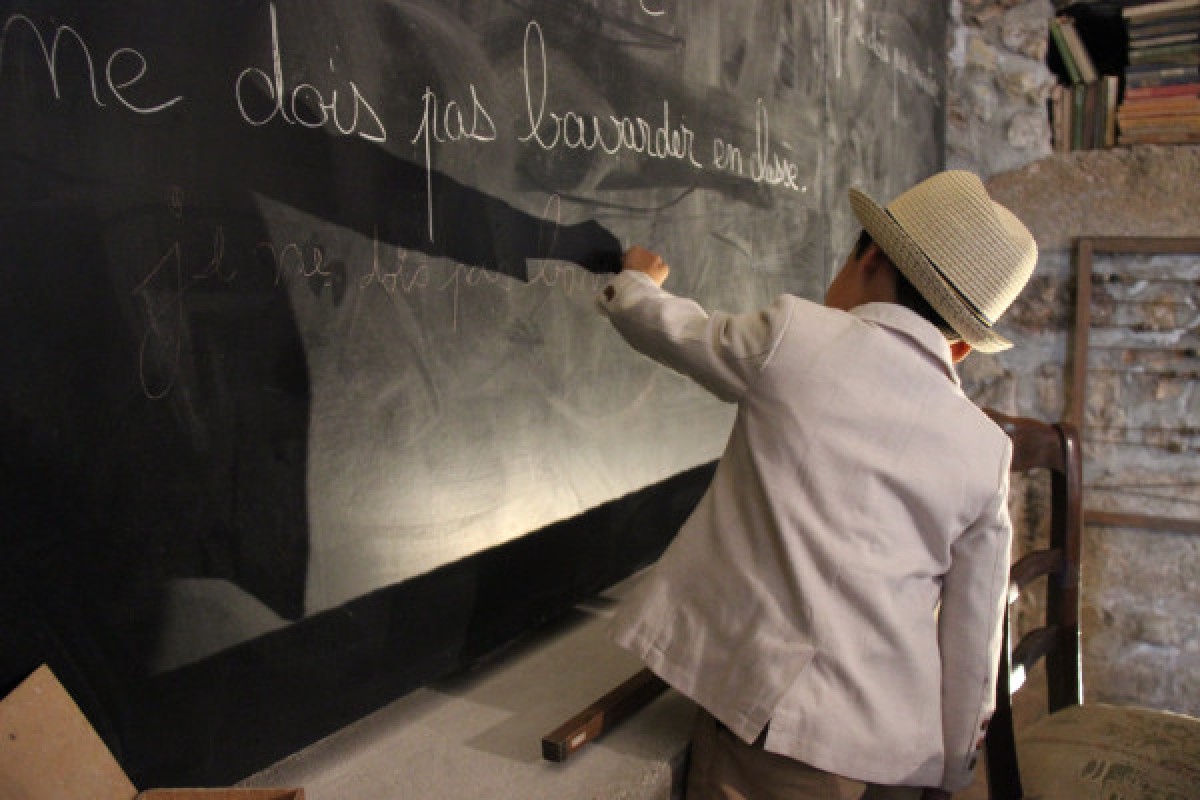 ne dois pas bavarder en classe.
je ne dois pas bav